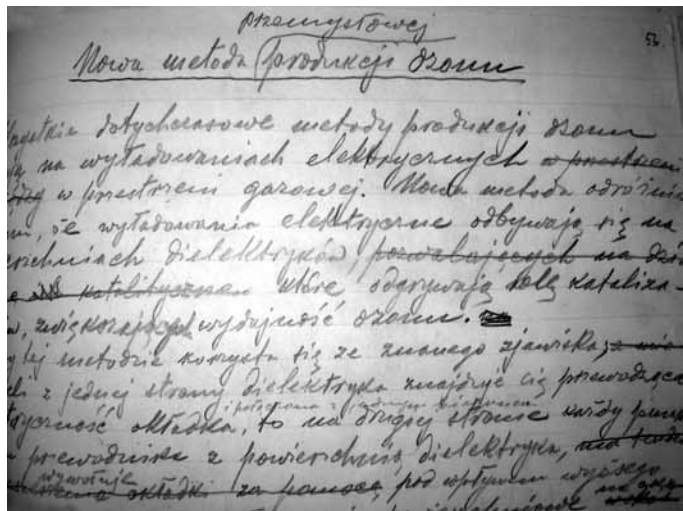 przemysłowej
53.
Nowa metoda produkcji ozonu
Wszystkie dotychczasowe metody produkcji ozonu
na wyładowaniach elektrycznych w przestrzeni
w przestrzeni gazowej. Nowa metoda odróżnia
że wyładowania elektryczne odbywają się na
powierzchniach dielektryków, pozwalających na
katalitycznem które odgrywają rolę kataliza-
zwiększających wydajność ozonu.
tej metodzie korzysta się ze znanego zjawiska,
z jednej strony dielektryka znajduje się przewodząca
połączona z jednym biegunem
okładka, to na drugiej stronie każdy punkt
przewodnika z powierzchnią dielektryka,
wywołuje
okładki za pomocą pod wpływem wyższego